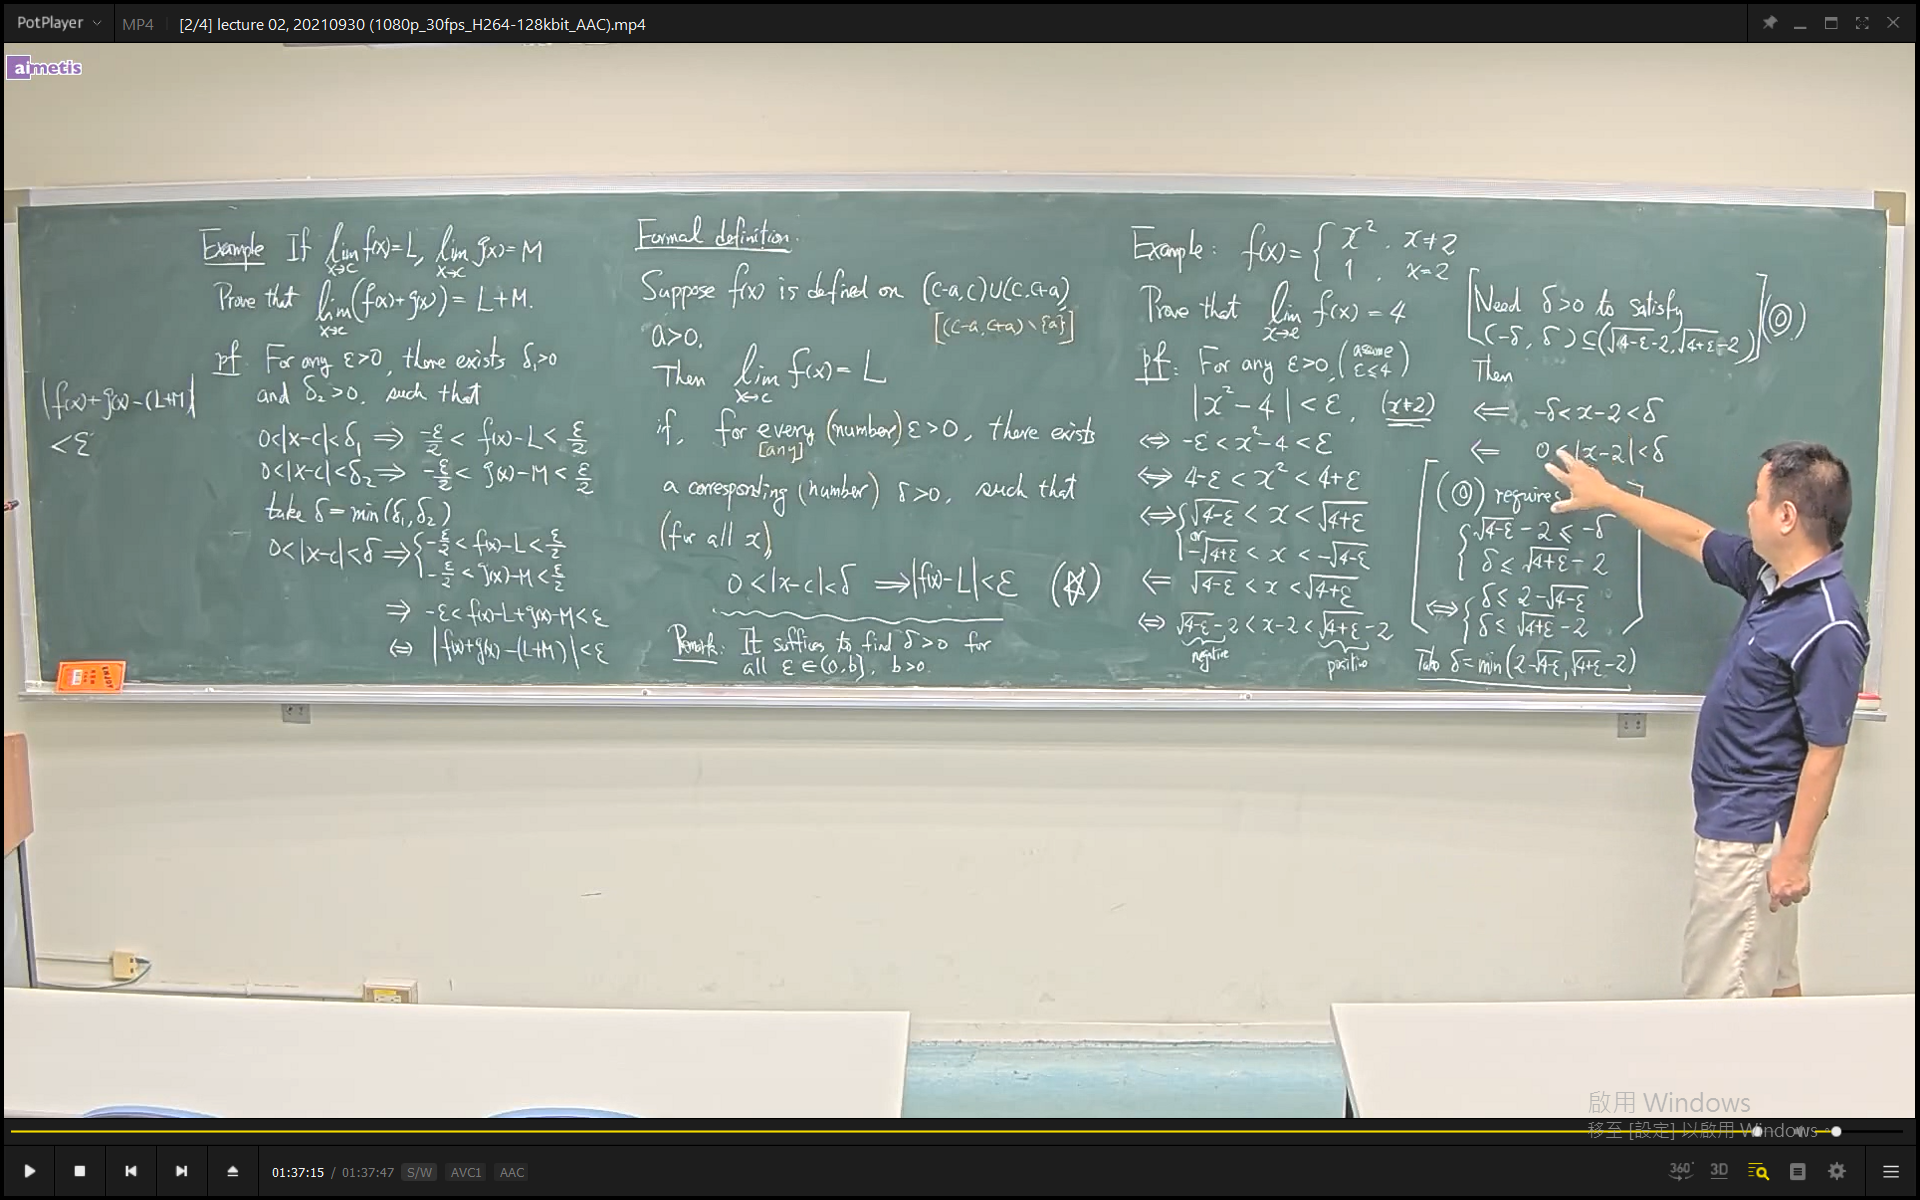 PotPlayer
MP4
[2/4] lecture 02, 20210930 (1080p_30fps_H264-128kbit_AAC).mp4
aimetis
|f(x)+g(x)-(L+M)|
<ε
Example If lim x→c f(x)=L, lim x→c g(x)=M
Prove that lim x→c (f(x)+g(x)) = L+M.
pf. For any ε>0, there exists δ₁>0
and δ₂>0, such that
0<|x-c|<δ₁ ⇒ -ε/2 < f(x)-L < ε/2
0<|x-c|<δ₂ ⇒ -ε/2 < g(x)-M < ε/2
take δ=min(δ₁,δ₂)
0<|x-c|<δ ⇒ { -ε/2 < f(x)-L < ε/2
-ε/2 < g(x)-M < ε/2
⇒ -ε<f(x)-L+g(x)-M<ε
⇔ |f(x)+g(x)-(L+M)|<ε
Formal definition.
Suppose f(x) is defined on (c-a,c)∪(c,c+a)
[(c-a,c+a)∖{a}]
a>0.
Then lim x→c f(x) = L
if, for every (number) ε>0, there exists
[any]
a corresponding (number) δ>0, such that
(for all x)
0<|x-c|<δ ⇒ |f(x)-L|<ε (☆)
Remark: It suffices to find δ>0 for
all ε∈(0,b], b>0.
Example: f(x)= { x², x≠2
1, x=2
Prove that lim x→2 f(x) = 4
pf: For any ε>0, (assume ε≤4)
|x²-4|<ε, (x≠2)
⇔ -ε<x²-4<ε
⇔ 4-ε<x²<4+ε
⇔ { √4-ε < x < √4+ε
or
-√4+ε < x < -√4-ε
⇐ √4-ε < x < √4+ε
⇔ √4-ε-2 < x-2 < √4+ε-2
negative
positive
[Need δ>0 to satisfy
(-δ, δ)⊆(√4-ε-2,√4+ε-2)] (◎)
Then
⇐ -δ<x-2<δ
⇐ 0<|x-2|<δ
[(◎) requires
{ √4-ε-2 ≤ -δ
δ ≤ √4+ε-2
⇔ { δ ≤ 2-√4-ε
δ ≤ √4+ε-2 ]
Take δ=min(2-√4-ε,√4+ε-2)
啟用 Windows
移至 [設定] 以啟用 Windows。
01:37:15 / 01:37:47 S/W AVC1 AAC
360° 3D